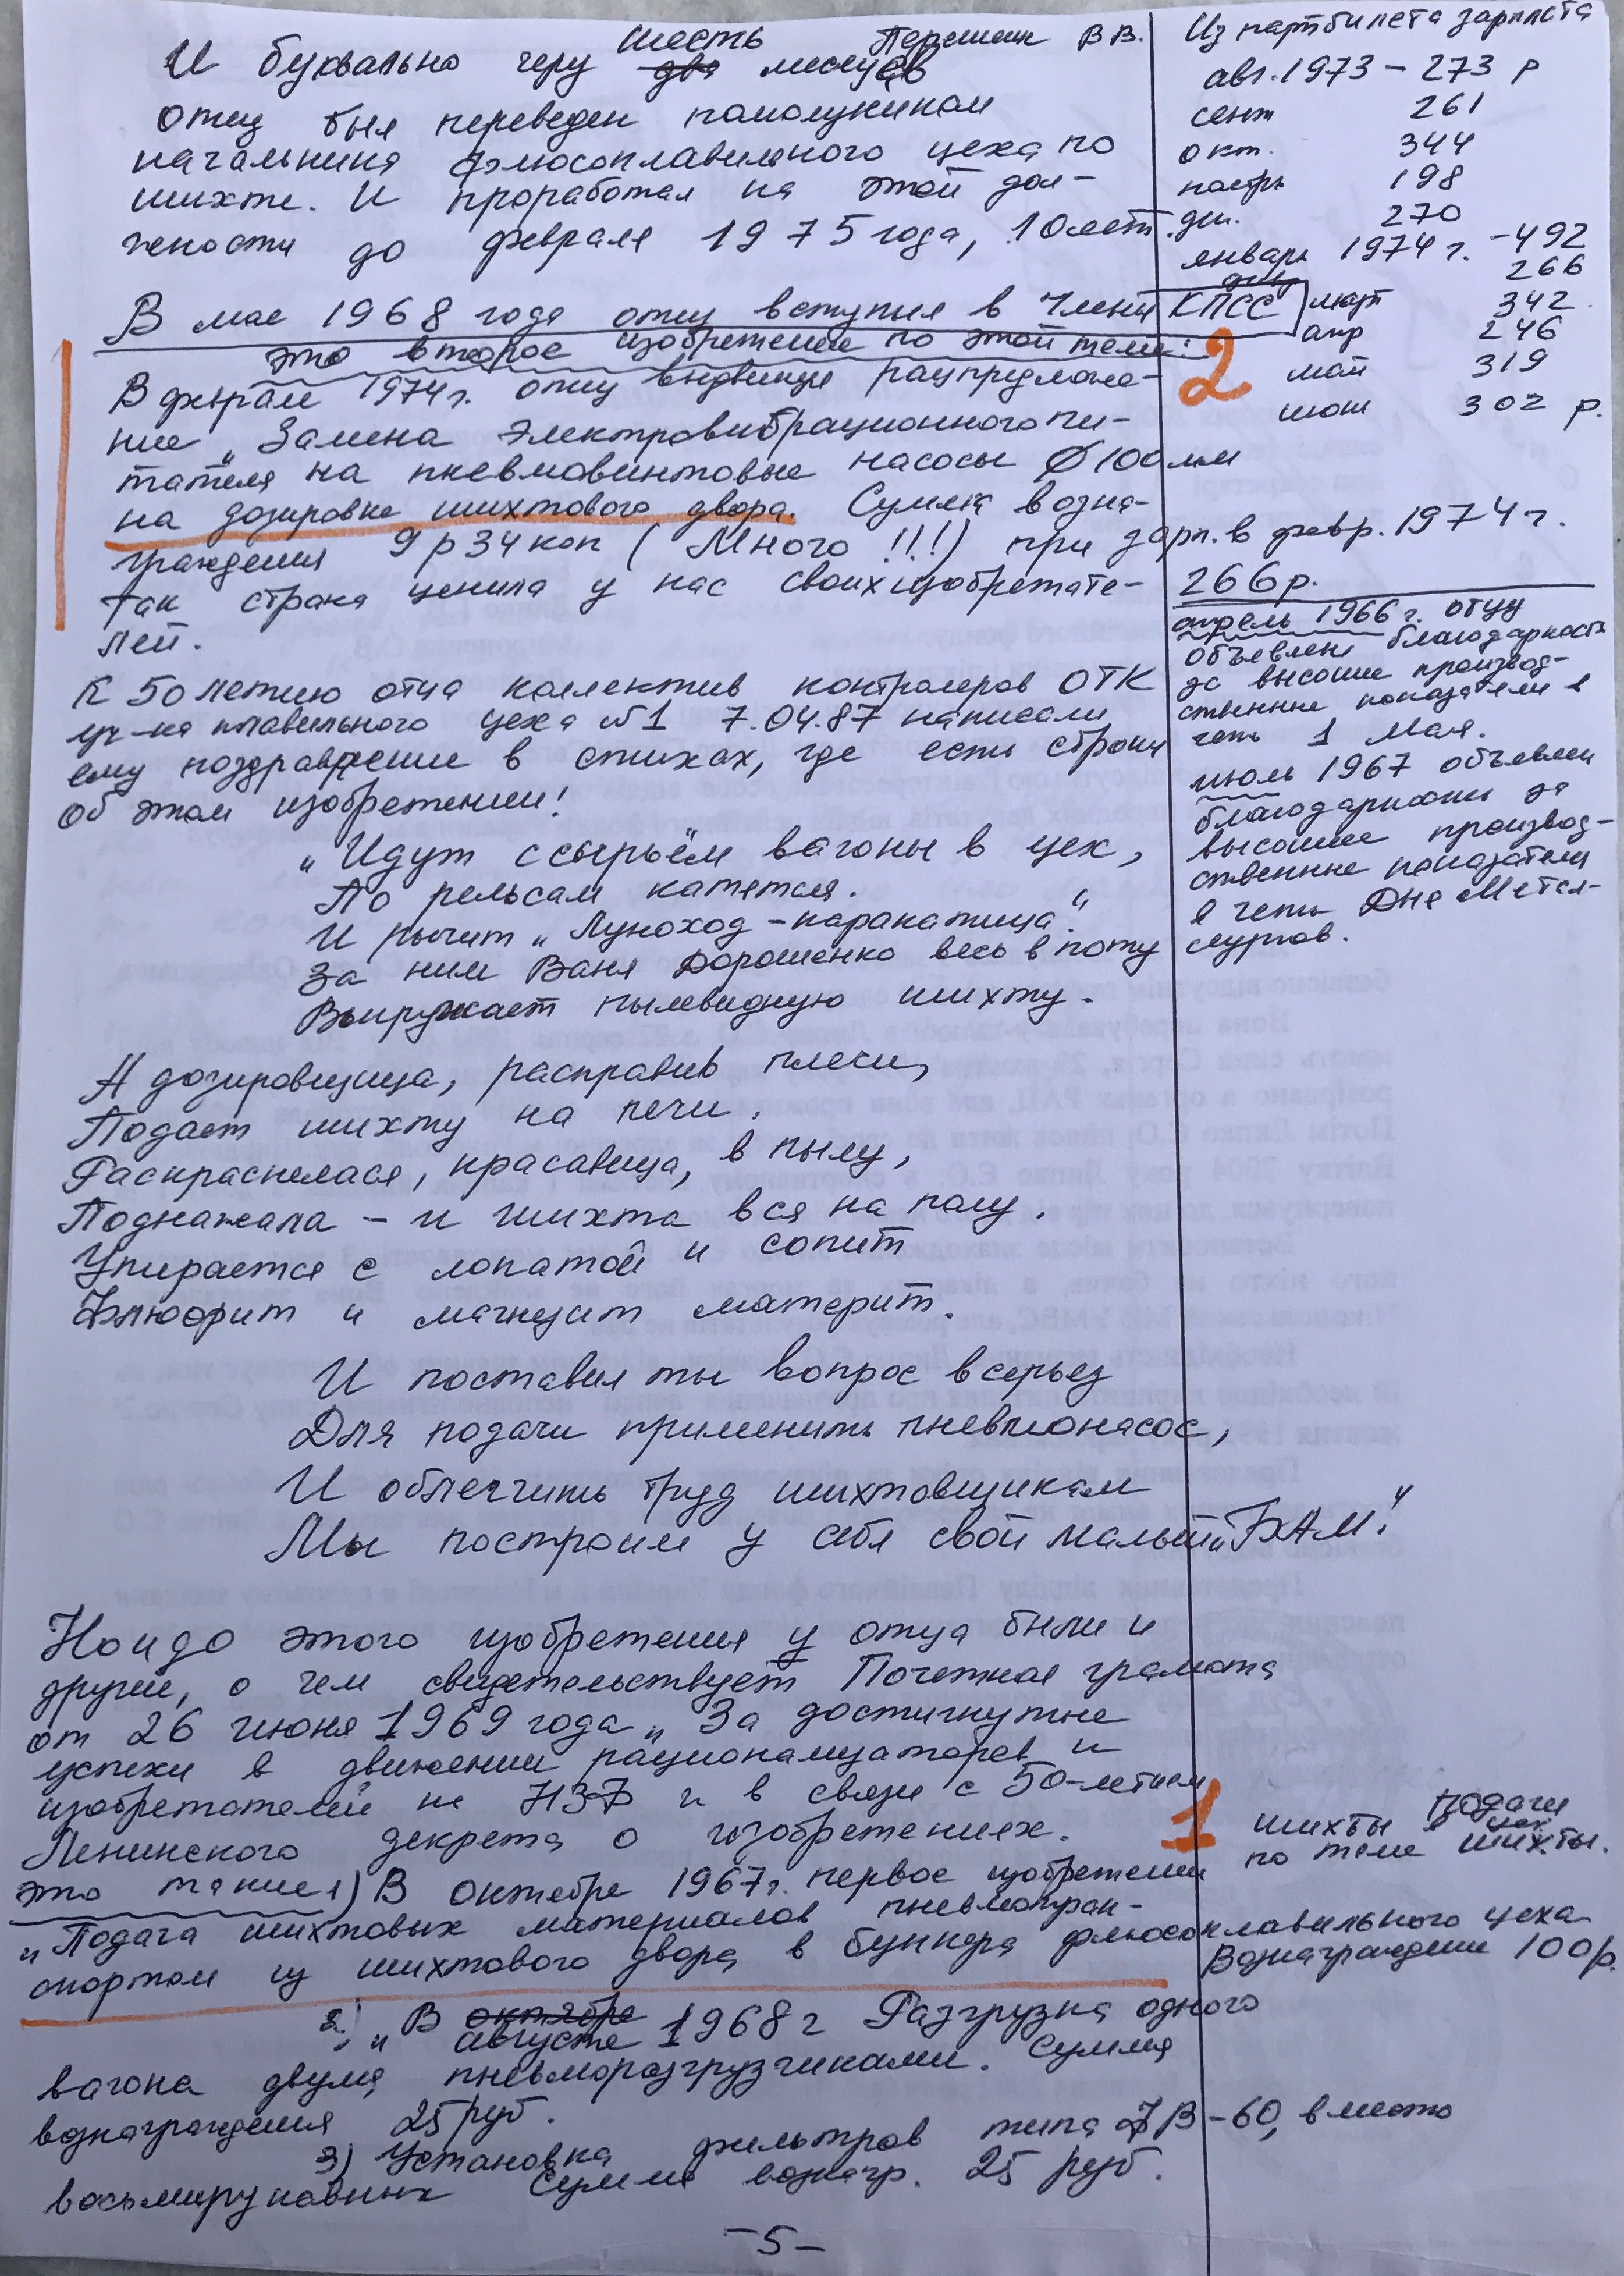 шесть Перешеин В В.
И буквально через два месяцев
отец был переведен помощником
начальника флюсоплавильного цеха по
шихте. И проработал на этой дол-
жности до февраля 1975 года, 10 лет.
В мае 1968 года отец вступил в члены КПСС
это второе изобретение по этой теме:
В феврале 1974г. отец выдвинул рацпредложе-
ние „Замена электровибрационного пи-
тателя на пневмовинтовые насосы Ø 100 мм
на дозировке шихтового двора. Сумма возна-
граждения 9 р 34 коп (Много !!!) при зарп. в февр. 1974 г.
266 р.
Так страна ценила у нас своих изобретате-
лей.
К 50 летию отца коллектив контролеров ОТК
уч-ка плавильного цеха №1 7.04.87 написали
ему поздравление в стихах, где есть строки
об этом изобретении!
„Идут с сырьём вагоны в цех,
По рельсам катятся.
И рычит „Луноход-каракатица".
За ним Ваня Дорошенко весь в поту
Выгружает пылевидную шихту.
А дозировщица, расправив плечи,
Подает шихту на печи.
Раскраснелася, красавица, в пылу,
Поднажала – и шихта вся на полу.
Упирается с лопатой и сопит
Флюорит и магнезит материт.
И поставил ты вопрос всерьез
Для подачи применить пневмонасос,
И облегчить труд шихтовщикам
Мы построим у себя свой малый „БАМ"!
Но и до этого изобретения у отца были и
другие, о чем свидетельствует Почетная грамота
от 26 июня 1969 года „За достигнутые
успехи в движении рационализаторов и
изобретателей на НЗФ и в связи с 50-летием
Ленинского декрета о изобретениях.
это такие 1) В октябре 1967г. первое изобретение
1 по теме подачи шихты в цех шихты.
„Подача шихтовых материалов пневмотран-
спортом из шихтового двора в бункера флюсоплавильного цеха.
Вознаграждение 100 р.
2) „В октябре августе 1968 г Разгрузка одного
вагона двумя пневморазгрузчиками. Сумма
вознаграждения 25 руб.
3) Установка фильтров типа ФВ-60, вместо
восьмирукавных Сумма вознагр. 25 руб.
-5-
Из партбилета зарплата
авг. 1973 – 273 р
сент 261
окт. 344
ноябрь 198
дек. 270
январь 1974 г. – 492
266
март 342
апр 246
2
май 319
июнь 302 р.
апрель 1966 г. отцу
объявлена благодарность
за высокие производ-
ственные показатели в
честь 1 Мая.
июль 1967 объявлен
благодарность за
высокие производ-
ственные показатели
в честь Дня Метал-
лургов.